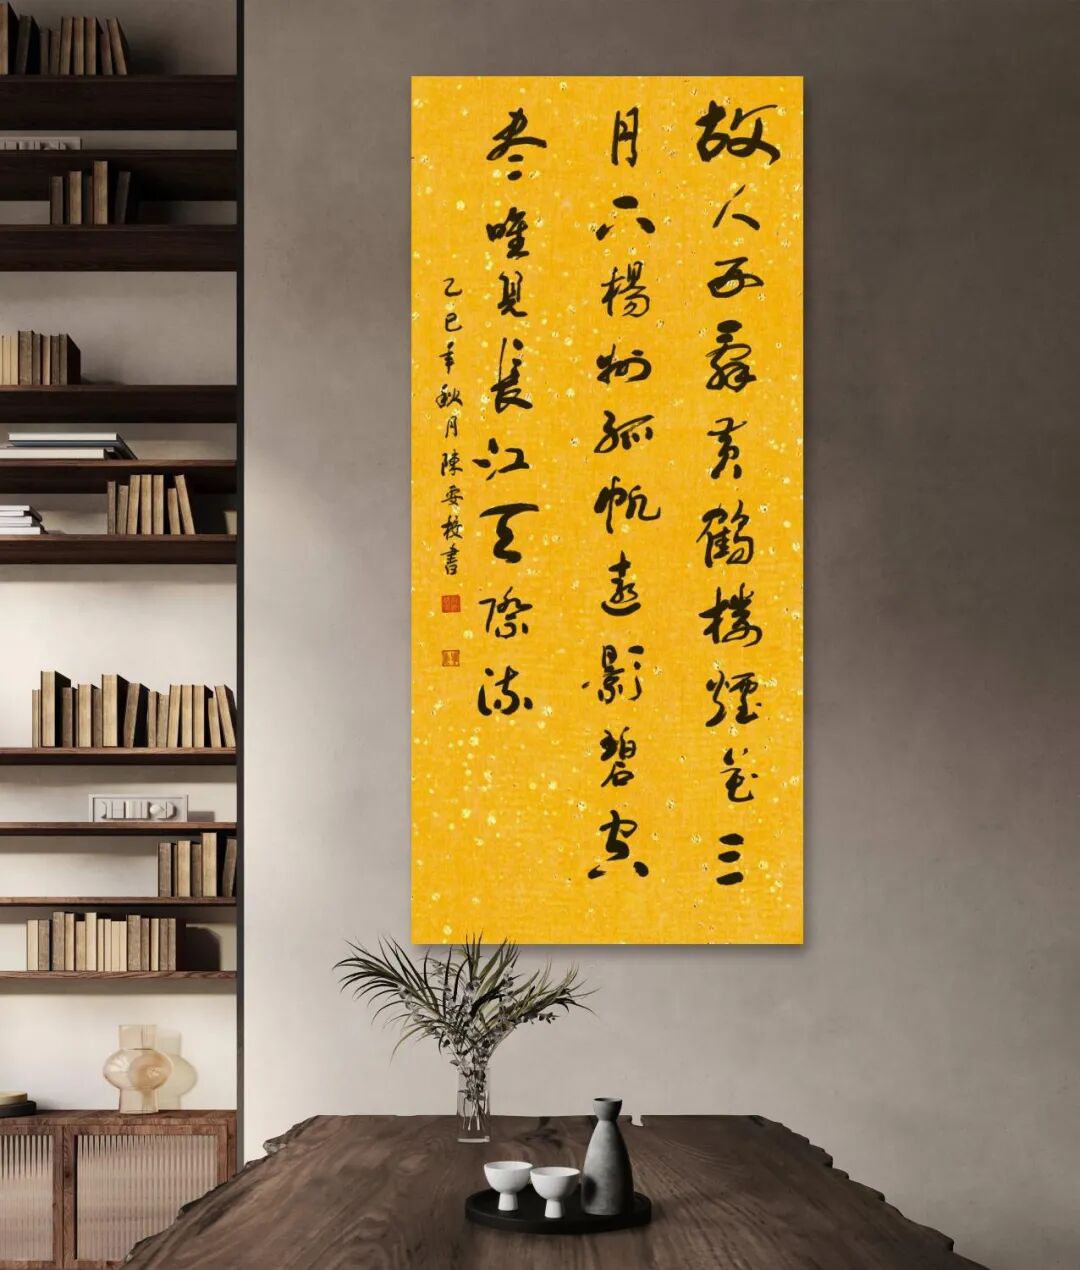 故人西辭黃鶴樓煙花三
月下楊州孤帆遠影碧空
盡唯見長江天際流
乙巳年秋月陳校書